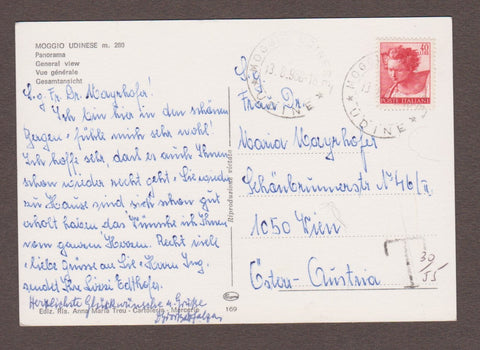 MOGGIO UDINESE m. 280
Panorama
General view
Vue générale
Gesamtansicht
S.g. Fr. Dr. Mayrhofer!
Ich bin hier in den schönen
Gegen - fühle mich sehr wohl!
Ich hoffe sehr, daß es auch Ihnen
schon wieder recht geht, Sie werden
zu Hause sind sich schon gut
erholt haben das wünsche ich Ihnen
vom ganzen Herzen. Recht viele
liebe Grüsse an Sie + Herrn Ing.
sendet Ihre Edthofer.
Herzlichste Glückwünsche u. Grüße
Ediz. Ris. Anna Maria Treu - Cartoleria - Moggio
169
Riproduzione vietata
MOGGIO UDINESE
UDINE
40
POSTE ITALIANE
S.g.
Frau Dr.
Maria Mayrhofer
Schönbrunnerstr. N° 46/II
1050 Wien
Österr - Austria
T 30/55